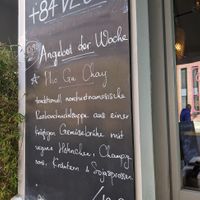 +84 VE
Angebot der Woche
Mie Ga Chay
traditionell nordvietnamesische
aus einer
kräftigen Gemüsebrühe mit
vegane Hühnchen, Champig
nons, Kräutern & Sojasprossen